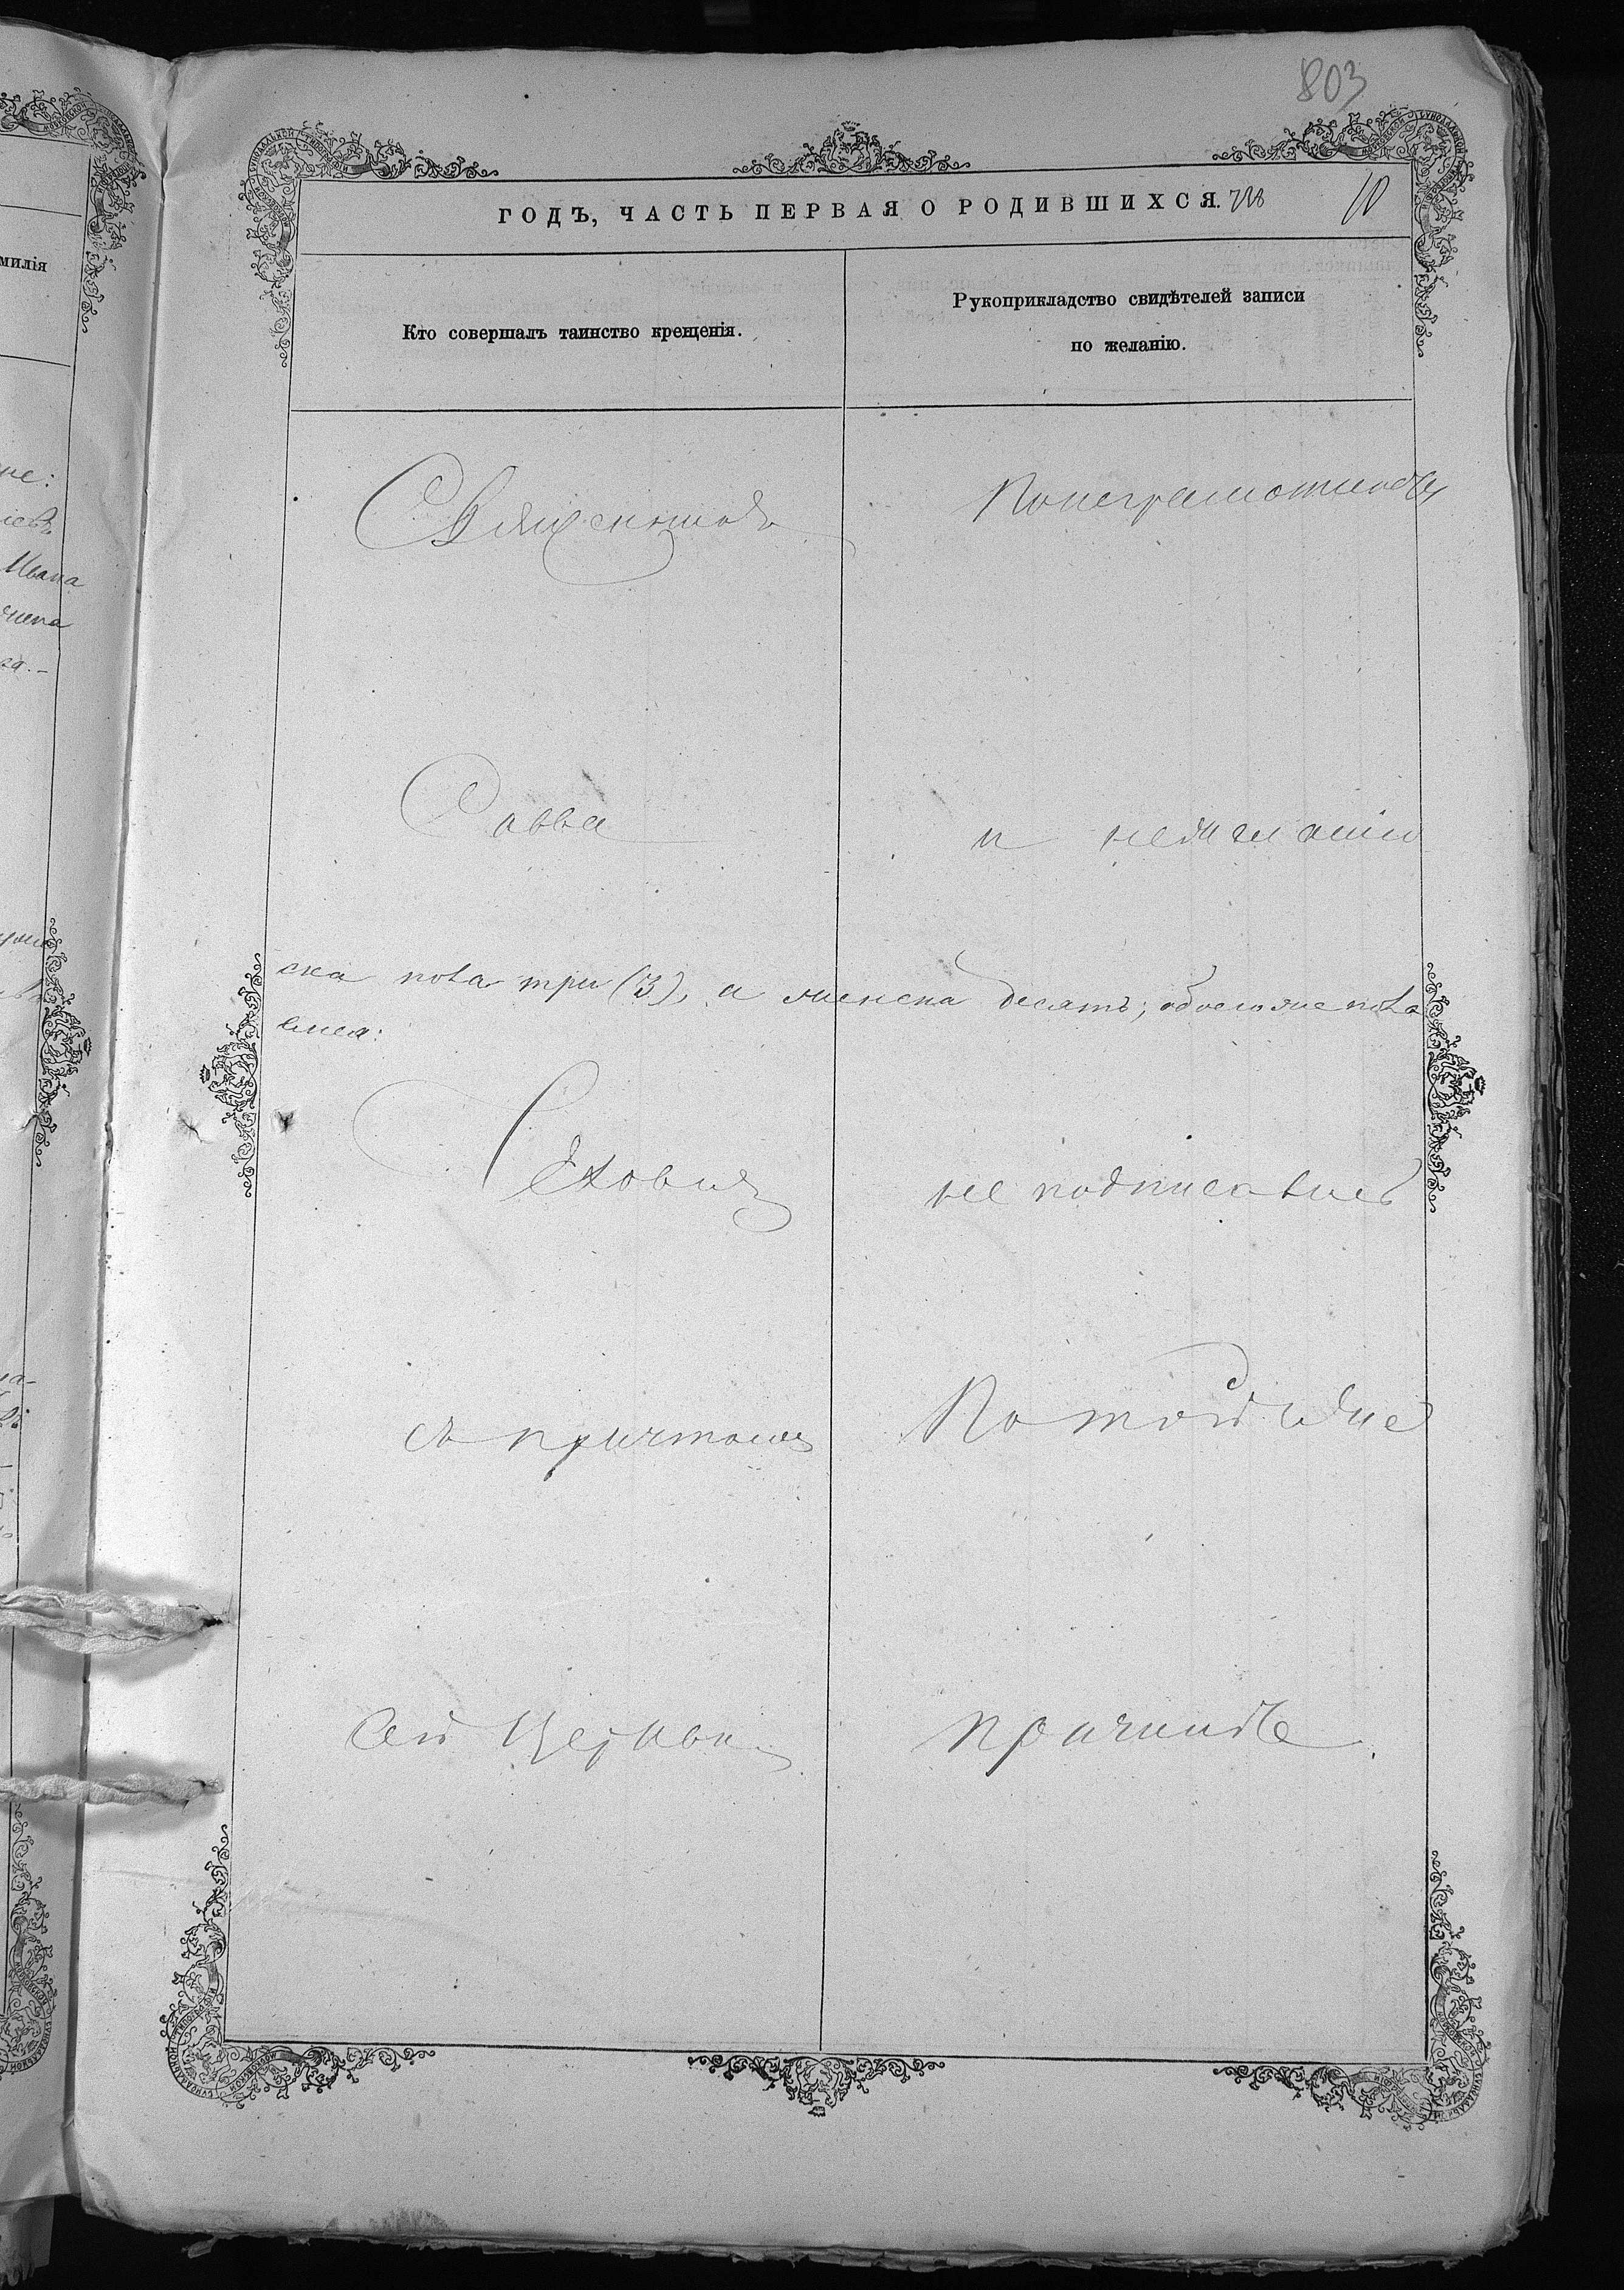 803
ГОДЪ, ЧАСТЬ ПЕРВАЯ О РОДИВШИХСЯ. 728 10
Кто совершалъ таинство крещенія.
Рукоприкладство свидѣтелей записи
по желанію.
милія
Ивана
Священникъ
По неграмотности
Савва
и нежеланію
ска пола три (3), а женска десять; обоего же пола
не подписались
съ причтомъ
По той же
Сей Церкви
причинѣ